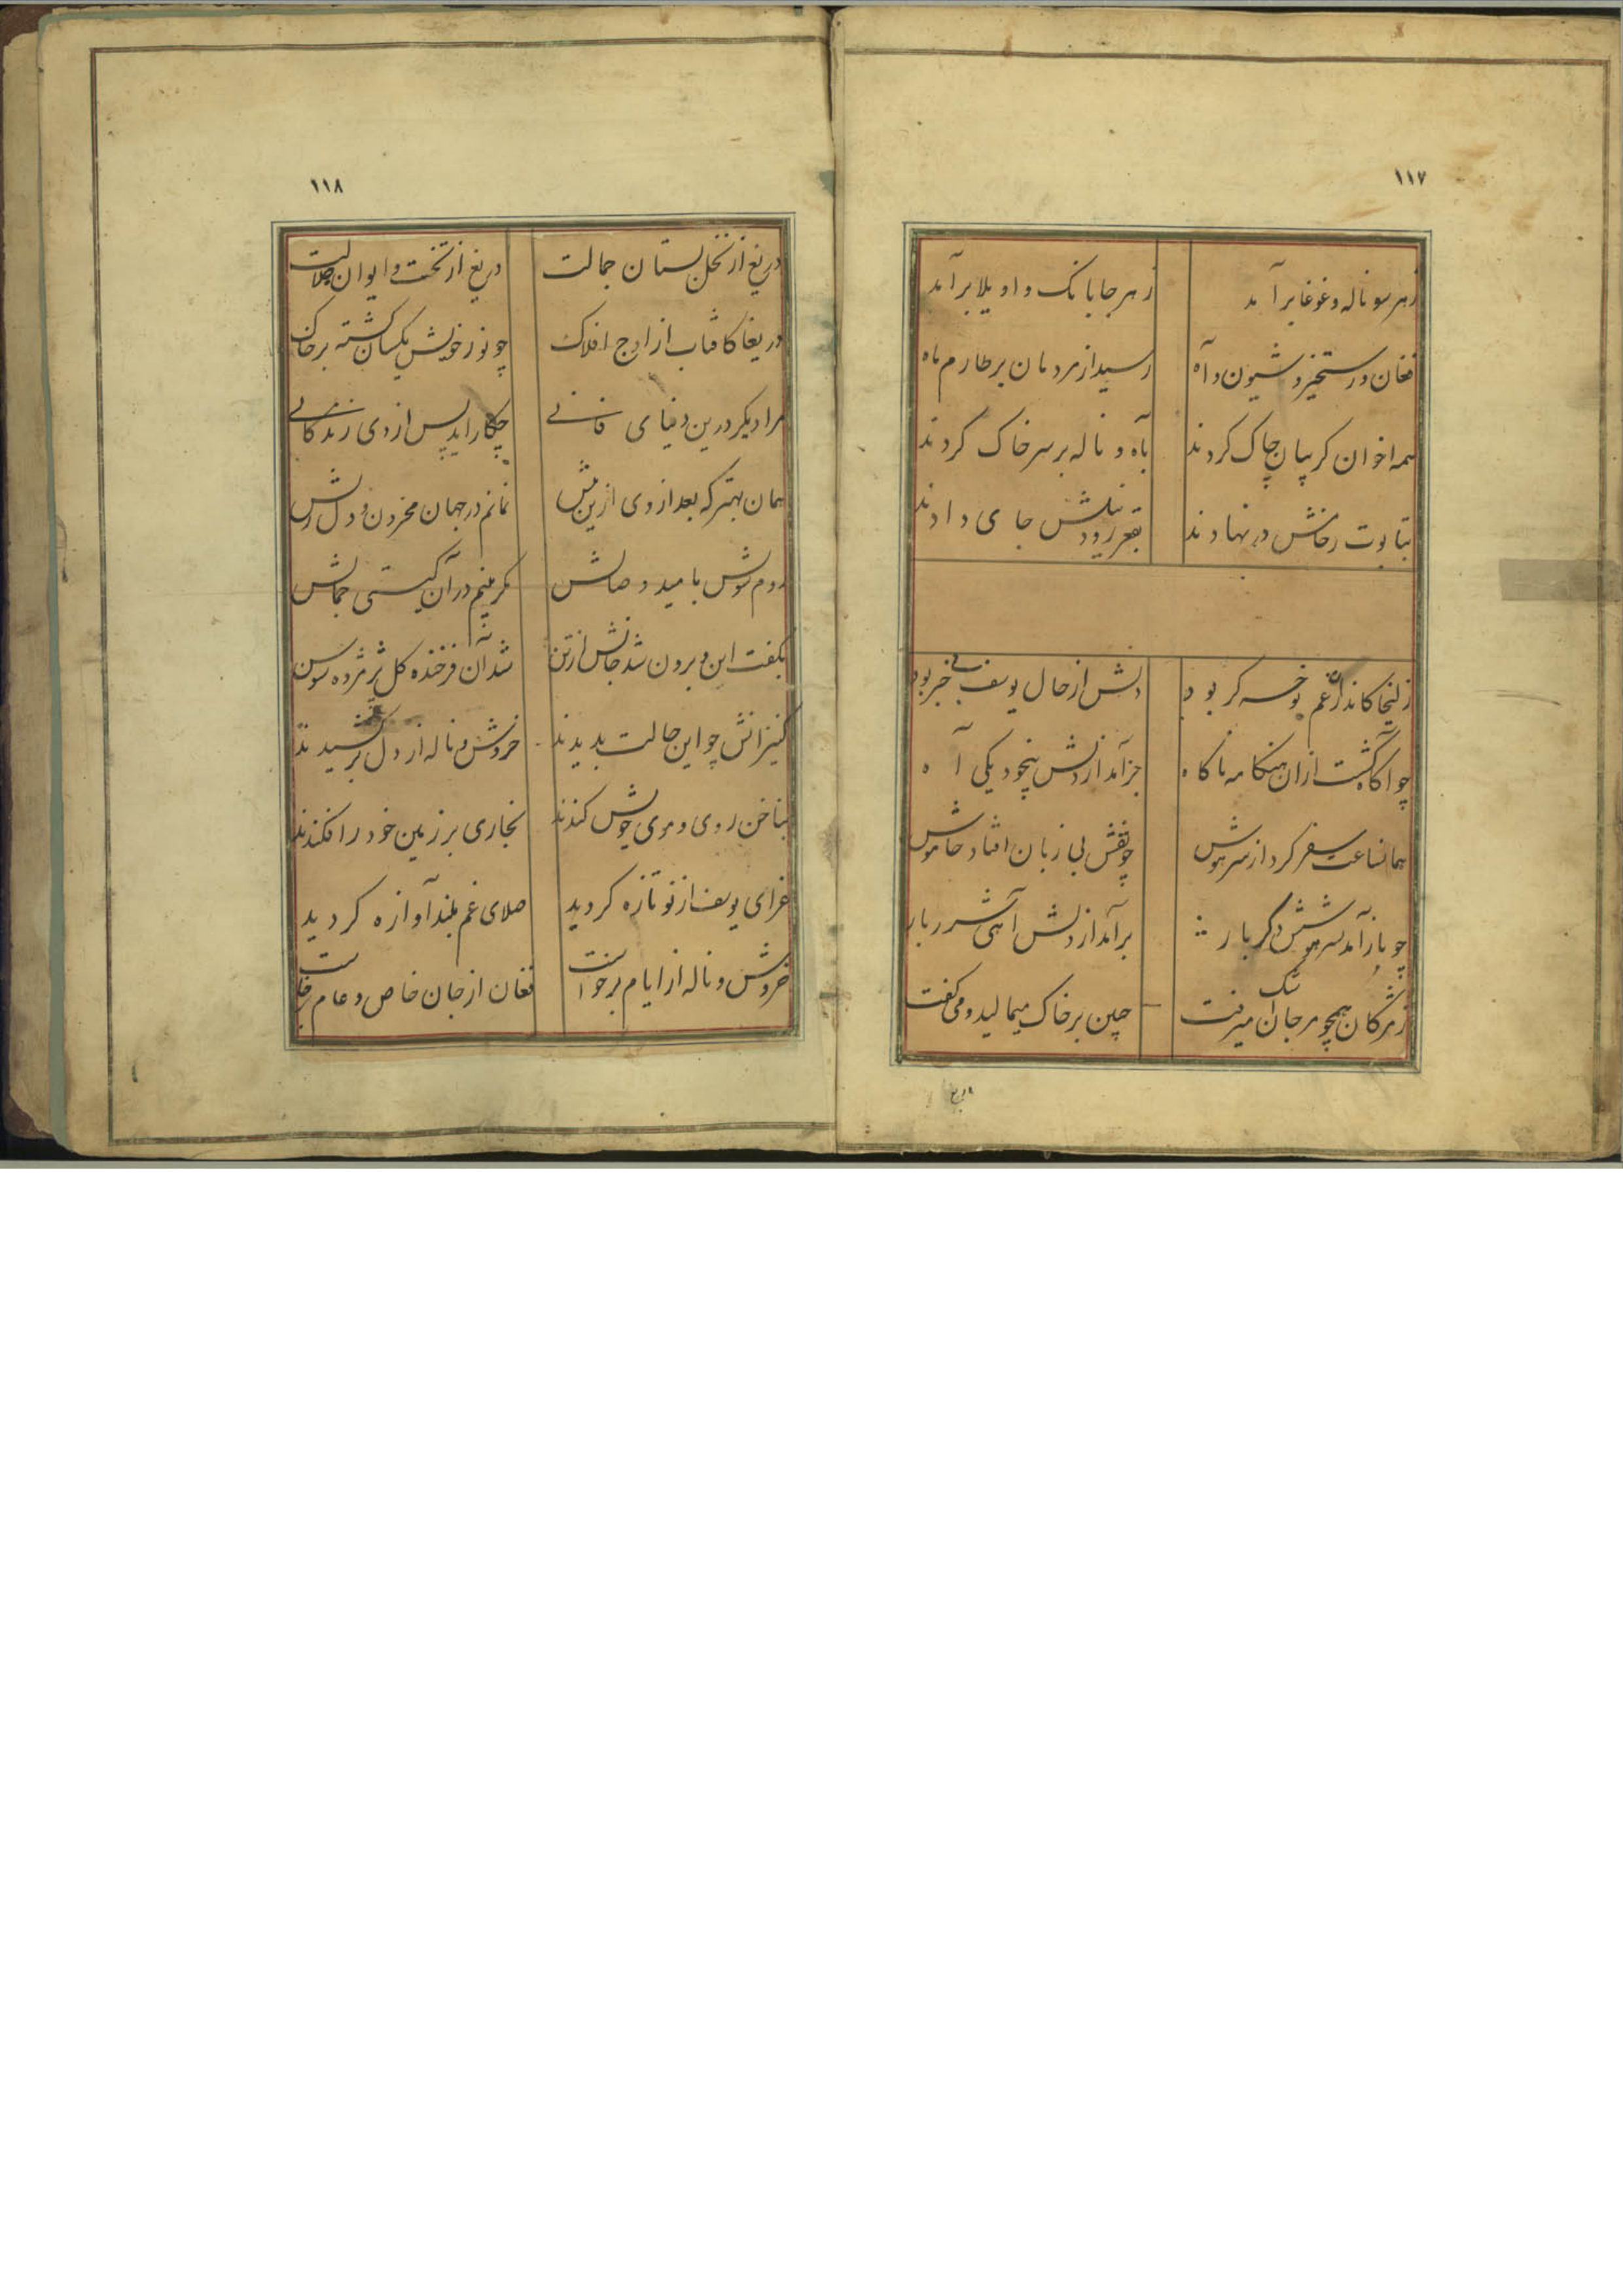 ١١٧
زهر سو ناله و غوغا برآمد زهر جا بانک واویلا برآمد
فغان و رستخیز و شیون و آه رسید از مردمان بر طارم ماه
همه اخوان کریبان چاک کردند بآه و ناله بر سر خاک کردند
بتابوت رخامش در نهادند بقعر رود نیلش جای دادند
زلیخا کاندران غم نوحه کر بود دلش از حال یوسف بی خبر بود
چو آکاه کشت ازان هنکامه ناکاه جز آمد از دلش بیخود یکی آه
همانساعت سفر کرد از سرش هوش چو نقش بی زبان افتاد خاموش
چو باز آمد بسر هوشش دکر بار برآمد از دلش آهی شرربار
زمژکان همچو مرجان اشک میرفت جبین بر خاک میمالید و می کفت
دریغ
١١٨
دریغ از نخل بستان جمالت دریغ از تخت و ایوان جلالت
دریغا کافتاب از اوج افلاک چو نور خویش یکسان کشته بر خاک
مرا دیکر درین دنیای فانی چکار آید پس از وی زندکانی
همان بهتر که بعد از وی ازین بیش نمانم در جهان محزون و دل ریش
روم سویش بامید وصالش مکر بینم در آن کیتی جمالش
بکفت این و برون شد جانش از تن شد آن فرخنده کل پژمرده سوسن
کنیزانش چو این حالت بدیدند خروش و ناله از دل برکشیدند
بناخن روی و موی خویش کندند بخاری بر زمین خود را فکندند
عزای یوسف از نو تازه کردید صلای غم بلند آوازه کردید
خروش و ناله از ایام برخواست فغان از جان خاص و عام برخاست